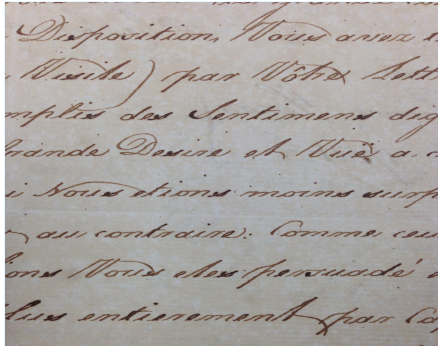 Disposition, Vous avez
Visite) par Vôtre Lett
mplis des Sentimens dig
rande Desire et Vuë a
i Nous etions moins surp
au contraire: Comme ceu
ons Vous etes persuadé
lus entierement par Co